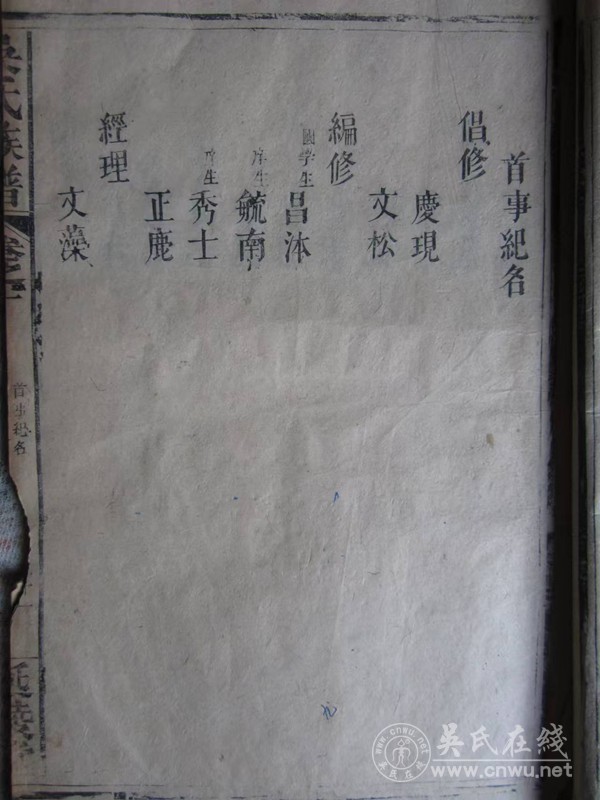 首事紀名
倡修
慶現
文松
編修
國学生 昌沐
庠生 毓南
庠生 秀士
正鹿
經理
文藻
吳氏族譜 卷之一
首事紀名
吳氏在綫
www.cnwu.net